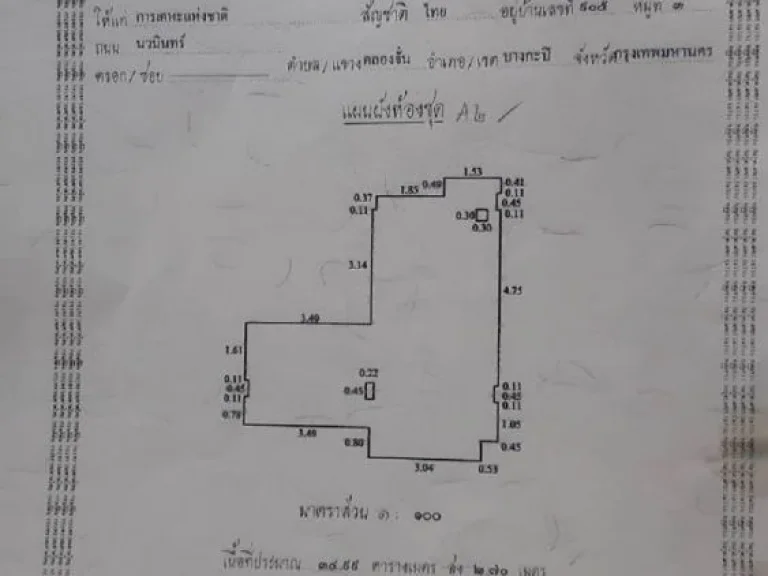 ให้แก่ การเคหะแห่งชาติ สัญชาติ ไทย อยู่บ้านเลขที่ ๙๐๕ หมู่ที่ ๓
ถนน นวมินทร์
ตรอก/ซอย ตำบล/แขวง คลองจั่น อำเภอ/เขต บางกะปิ จังหวัด กรุงเทพมหานคร
แผนผังห้องชุด A๒
1.53
0.49
0.41
0.11
0.45
0.11
1.85
0.37
0.11
0.30
0.30
3.14
4.75
3.49
1.61
0.22
0.45
0.11
0.45
0.11
0.11
0.45
0.11
0.79
1.05
3.48
0.80
0.45
3.04
0.53
มาตราส่วน ๑ : ๑๐๐
เนื้อที่ประมาณ ๓๔.๙๙ ตารางเมตร สูง ๒.๗๐ เมตร